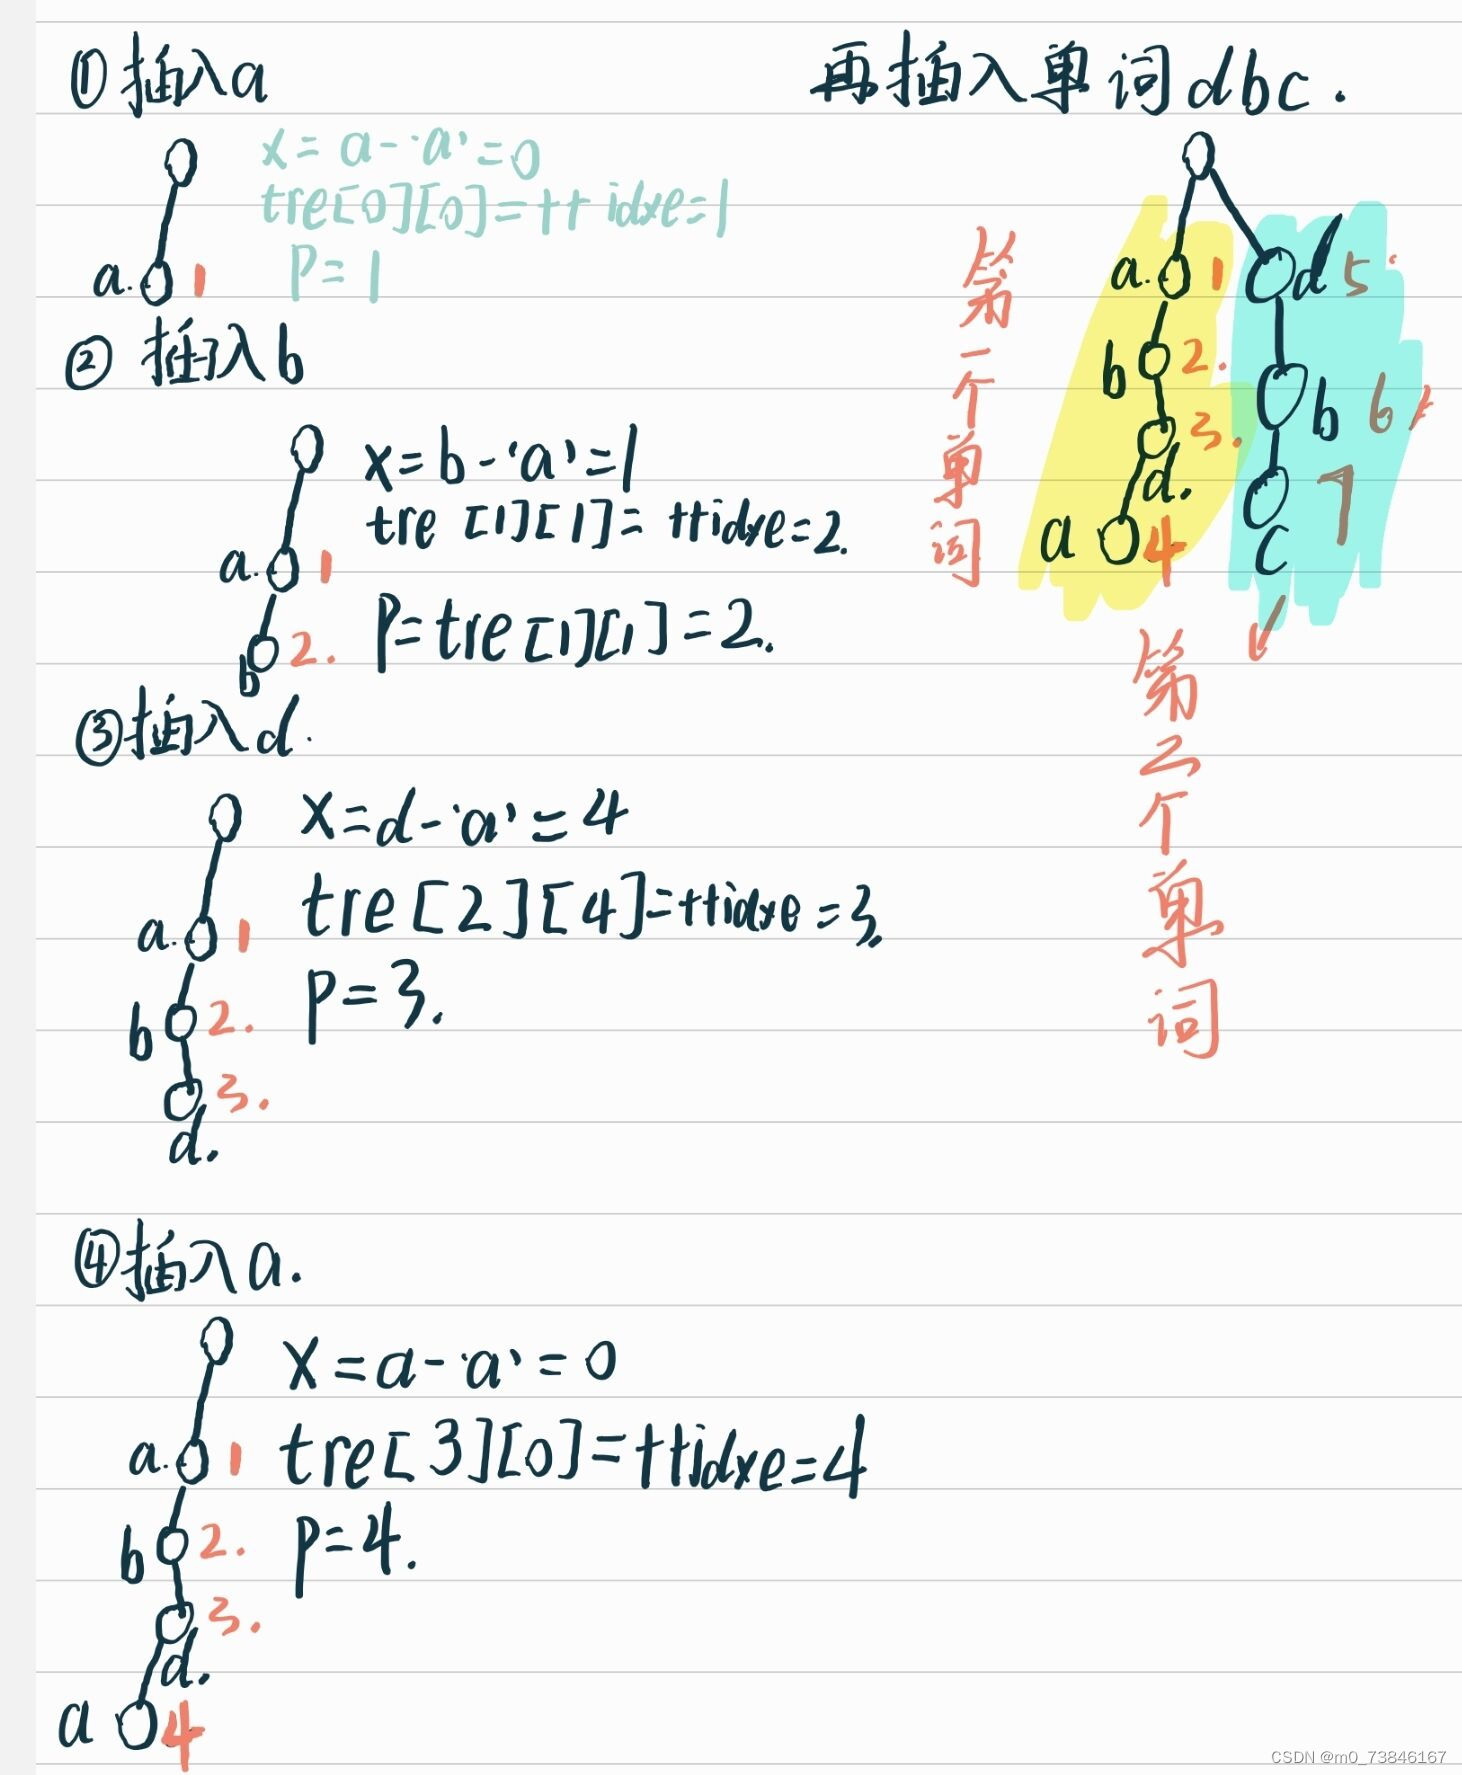 ①插入a
x=a-'a'=0
tre[0][0]=++idxe=1
a. 1
P=1
② 插入b
x=b-'a'=1
tre [1][1]=++idxe=2.
a. 1
P=tre[1][1]=2.
b 2.
③插入d.
x=d-'a'=4
tre[2][4]=++idxe=3.
a. 1
P=3.
b 2.
3.
d.
④插入a.
x=a-'a'=0
tre[3][0]=++idxe=4
a. 1
P=4.
b 2.
3.
d.
a 4
再插入单词dbc.
a. 1
d 5
b 2.
b 6
3.
d.
7
a 4
c
第一个单词
第二个单词
CSDN @m0_73846167